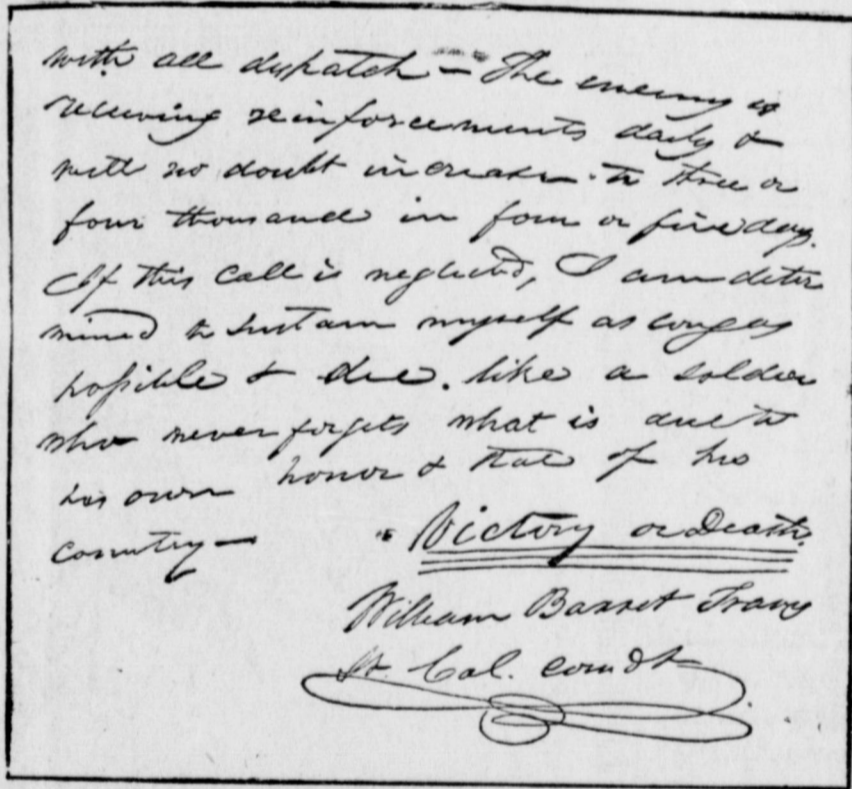 with all dispatch — The enemy is
receiving reinforcements daily &
will no doubt increase to three or
four thousand in four or five days.
If this call is neglected, I am deter
mined to sustain myself as long as
possible & die like a soldier
who never forgets what is due to
his own honor & that of his
country —
Victory or Death.
William Barret Travis
Lt. Col. comdt